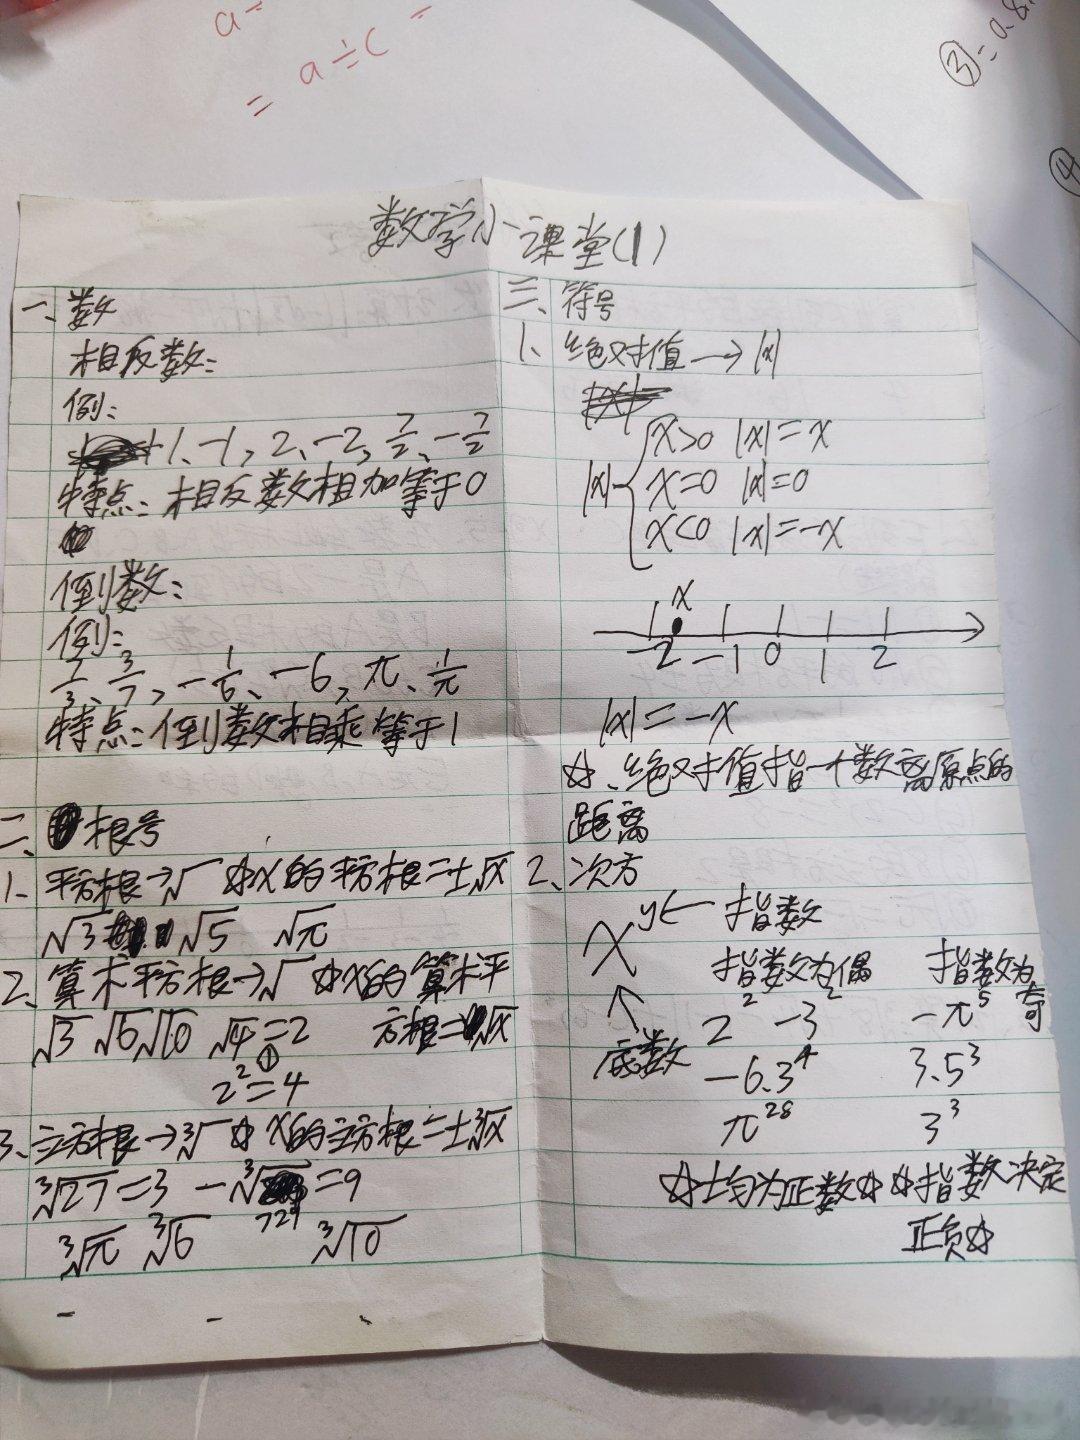 a=
= a÷c
③=a
④
数学小课堂(1)
一、数
相反数:
例:
+1、-1, 2、-2, 7/2、-7/2
特点:相反数相加等于0
倒数:
例:
7/3、3/7, -1/6、-6, π、1/π
特点:倒数相乘等于1
二、根号
1、平方根→√ ☆x的平方根=±√x
√3 √5 √π
2、算术平方根→√ ☆x的算术平
方根=√x
√3 √6 √10 √4=2
①
2²=4
3、立方根→³√ ☆x的立方根=±³√x
³√27=3 -³√729=9
³√π ³√6 ³√10
三、符号
1、绝对值→|x|
|x| { x>0 |x|=x
x=0 |x|=0
x<0 |x|=-x
x
-2 -1 0 1 2
|x|=-x
☆、绝对值指一个数离原点的
距离
2、次方
x^y←指数
↑
底数
指数为偶
2² -3²
-6.3⁴
π²⁸
☆均为正数☆
指数为奇
-π⁵
3.5³
3³
☆指数决定
正负☆